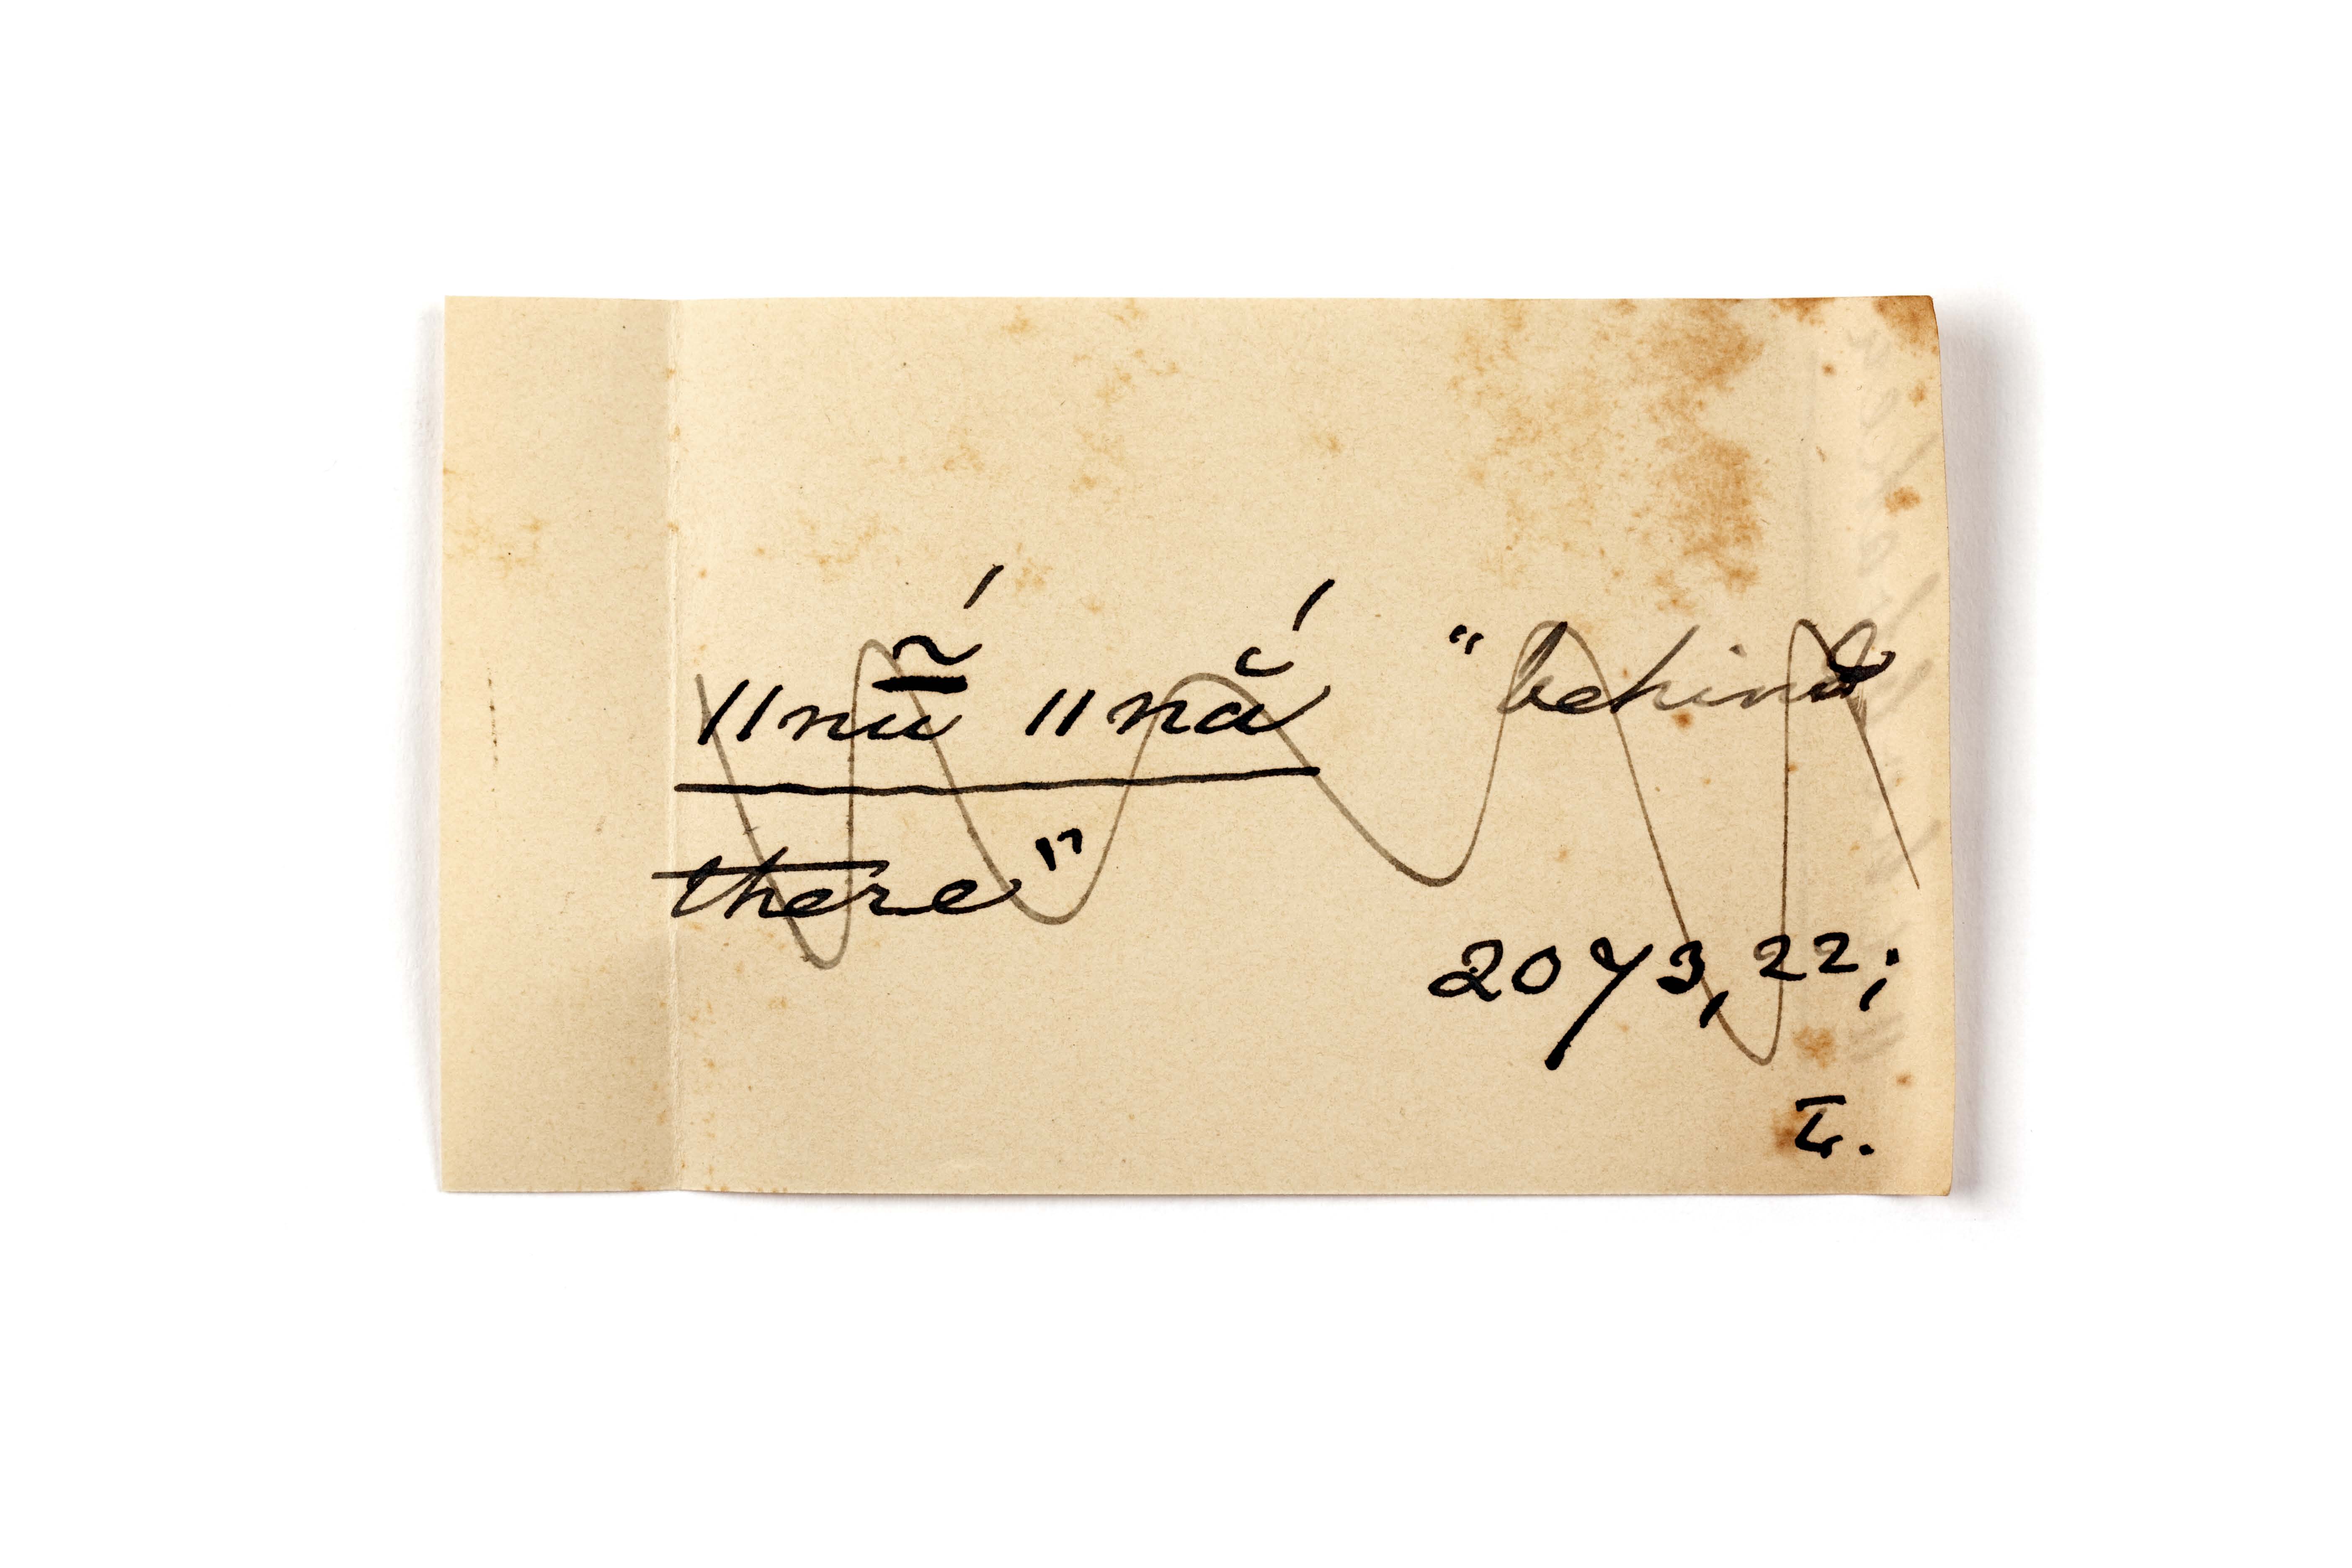 ||nū̃́ ||nắ "behind
there"
2073,22;
L.